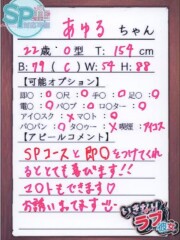 SP
あゆる ちゃん
22歳・0型 T:154cm
B:79(C) W:54 H:88
【可能オプション】
即〇:〇 尺〇:〇 手〇:〇
電〇:〇 バ〇プ:〇 ロ〇ター:〇
アイ〇スク:× マ〇ト:〇
パ〇パン:〇 タ〇ゥー:× 喫煙:アイコス
【アピールコメント】
SPコースと即〇をつけてくれ
るととても喜びます!!
マロトもできます♡
お誘いまってます
いきなり
ラブ彼女